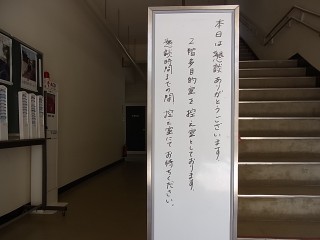 本日は懇談ありがとうございます。
2階多目的室を控え室としております。
懇談時間までの間、控え室にてお待ちください。